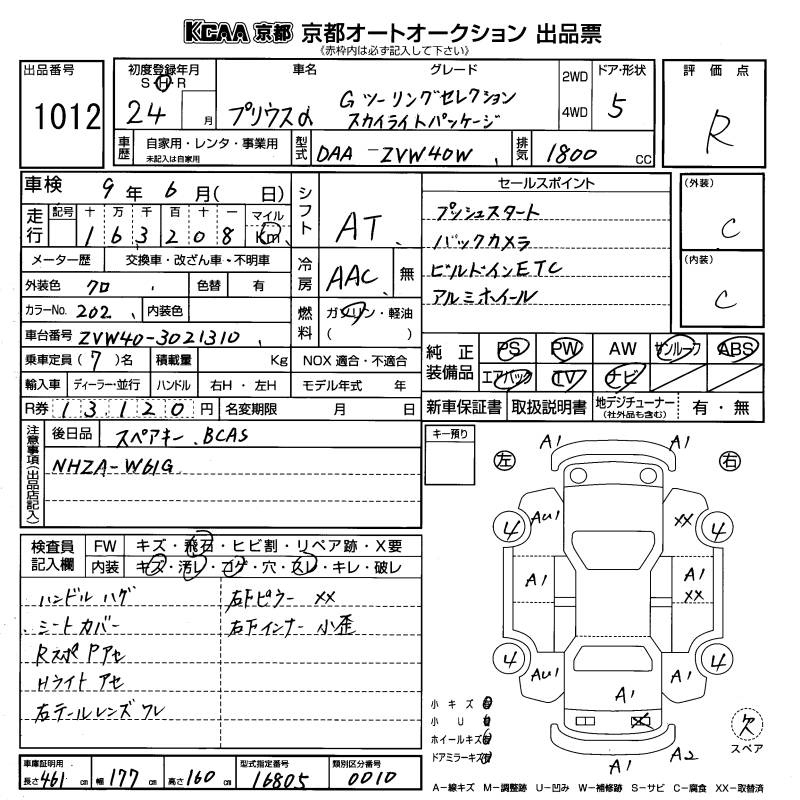 KCAA 京都 京都オートオークション 出品票
《赤枠内は必ず記入して下さい》
出品番号
1012
初度登録年月
S H R
24 月
車名
プリウスα
グレード
Gツーリングセレクション
スカイライトパッケージ
2WD
4WD
ドア・形状
5
評価点
R
車歴
自家用・レンタ・事業用
未記入は自家用
型式
DAA-ZVW40W
排気
1800 CC
車検 9年 6月( 日)
走行
記号 十 万 千 百 十 一 マイル
1 6 3 2 0 8 Km
メーター歴 交換車・改ざん車・不明車
外装色 クロ 色替 有
カラーNo. 202 内装色
車台番号 ZVW40-3021310
乗車定員 (7)名 積載量 Kg
輸入車 ディーラー・並行 ハンドル 右H・左H
R券 13,120円 名変期限 月 日
シフト
AT
冷房
AAC 無
燃料
ガソリン・軽油
( )
NOX 適合・不適合
モデル年式 年
セールスポイント
プッシュスタート
バックカメラ
ビルドインETC
アルミホイール
(外装)
C
(内装)
C
純正装備品
PS PW AW サンルーフ ABS
エアバック TV ナビ
新車保証書 取扱説明書 地デジチューナー
(社外品も含む)
有・無
注意事項(出品店記入)
後日品 スペアキー、BCAS
NHZA-W61G
キー預り
検査員記入欄
FW キズ・飛石・ヒビ割・リペア跡・X要
内装 キズ・汚レ・コゲ・穴・スレ・キレ・破レ
ハンドル ハゲ
シートカバー
Rスポ Pアセ
Hライト アセ
右テールレンズ ワレ
右下ピラー XX
右下インナー 小歪
左
右
A1
4
AU1
XX
4
A1
A1
XX
4
AU1
A1
4
A1
A1
A2
小キズ
小U
ホイールキズ
ドアミラーキズ
欠
スペア
車庫証明用
長さ 461 cm
幅 177 cm
高さ 160 cm
型式指定番号
16805
類別区分番号
0010
A-線キズ M-調整跡 U-凹み W-補修跡 S-サビ C-腐食 XX-取替済